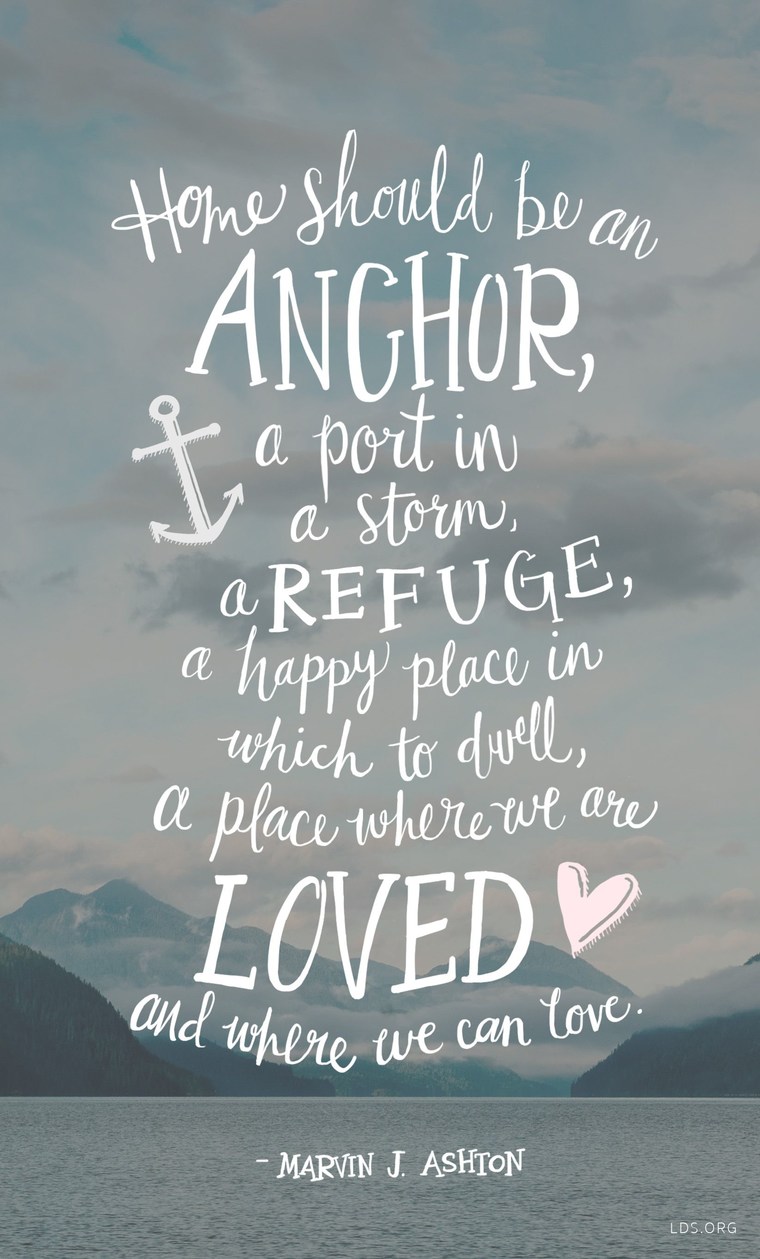 Home should be an
ANCHOR,
a port in
a storm,
a REFUGE,
a happy place in
which to dwell,
a place where we are
LOVED
and where we can love.
- MARVIN J. ASHTON
LDS.ORG